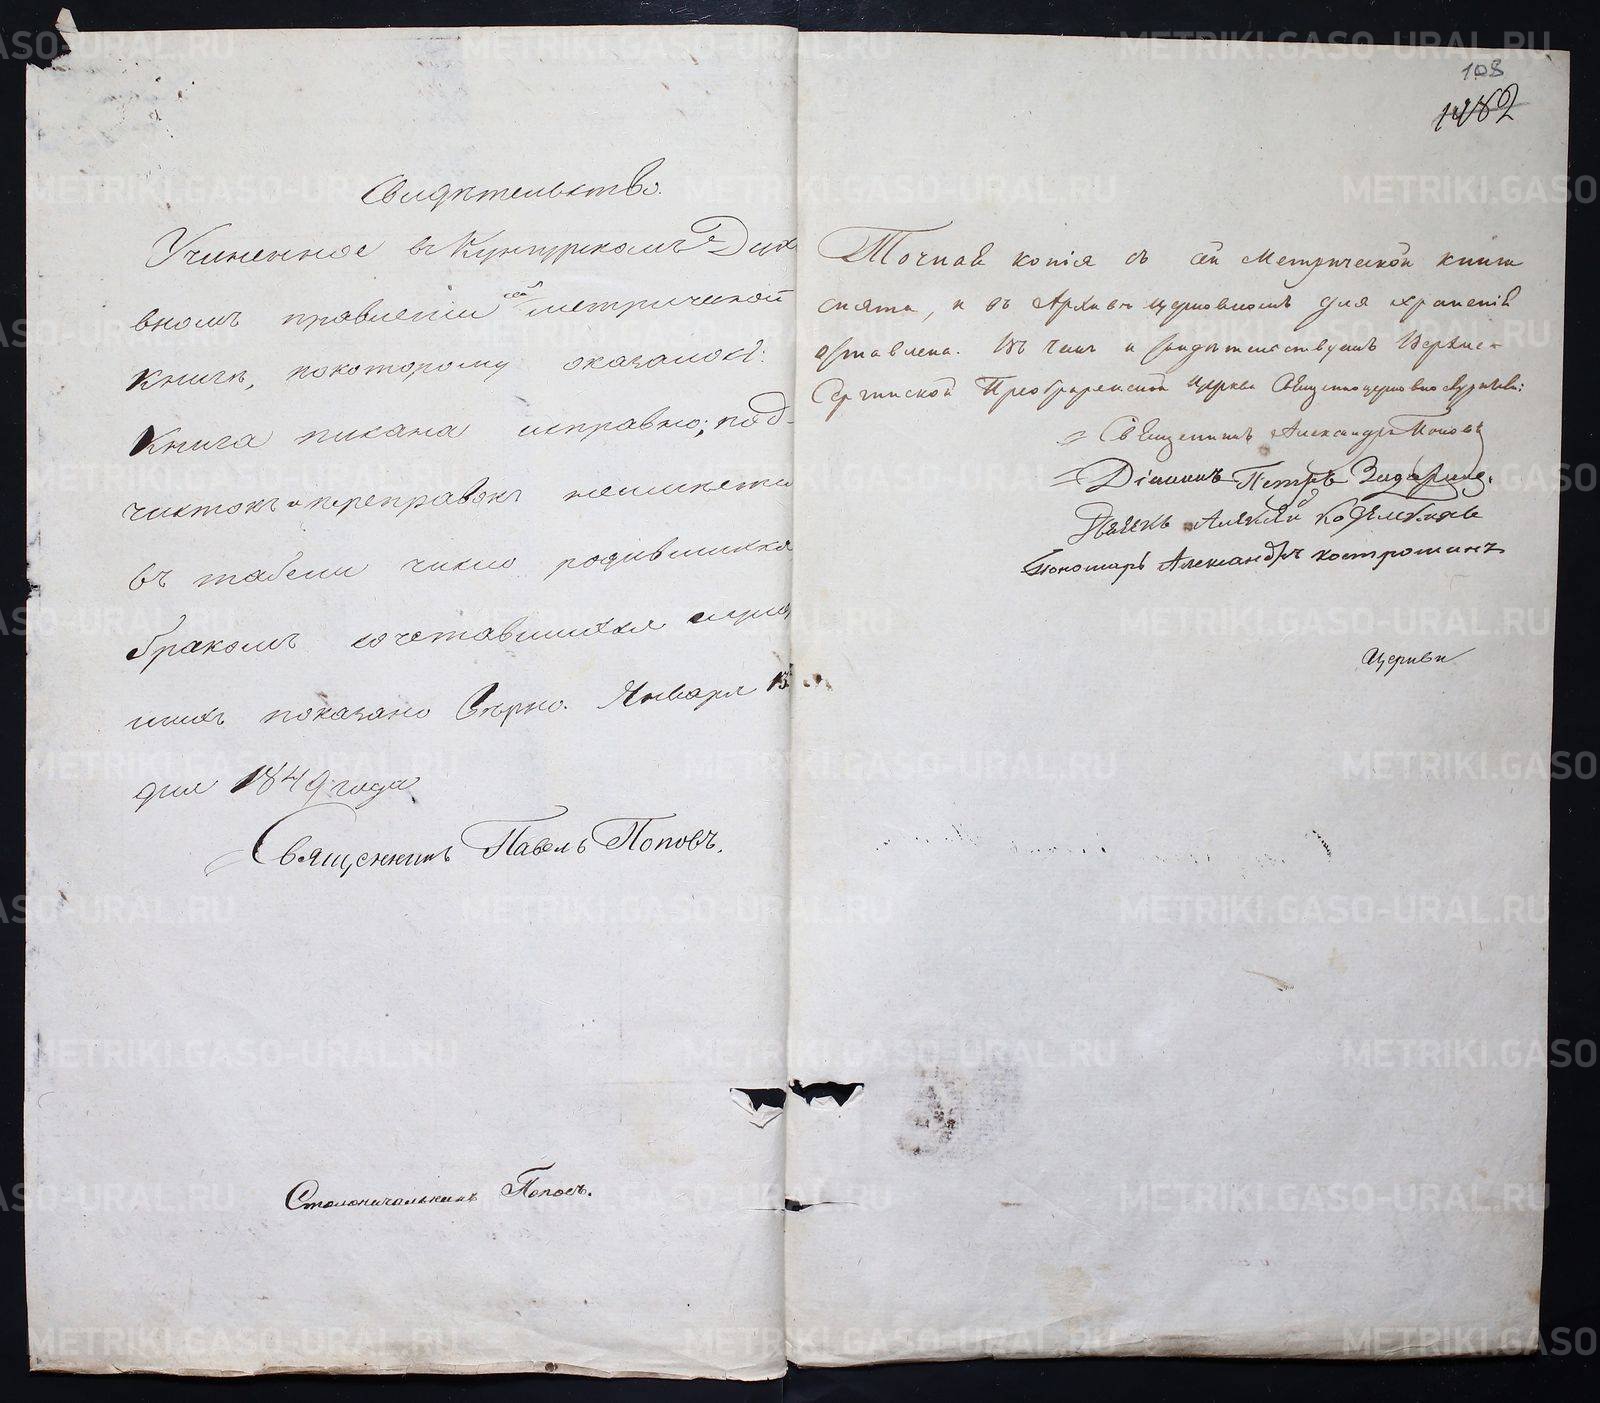 Свидѣтельство.
Учиненное въ Кунгурскомъ Дух
вномъ правленіи сей метрической
книги, покоторому оказалось:
Книга писана исправно; под-
чистокъ и переправокъ неимѣетъ
въ табели число родившихся
бракомъ сочетавшихся и умер
шихъ показано вѣрно. Января 13
дня 1849 года
Священникъ Павелъ Поповъ.
Столоначальникъ Поповъ.
108
1482
Точная копія съ сей Метрической книги
снята, и въ Архивѣ церковномъ для храненія
оставлена. Въ чемъ и свидѣтельствуемъ Верхне-
Сергинской Преображенской Церкви Священноцерковнослужители:
Священникъ Александръ Поповъ
Діаконъ Петръ
Дьячекъ Алексѣй
Пономарь Александръ Костроминъ
Церкви